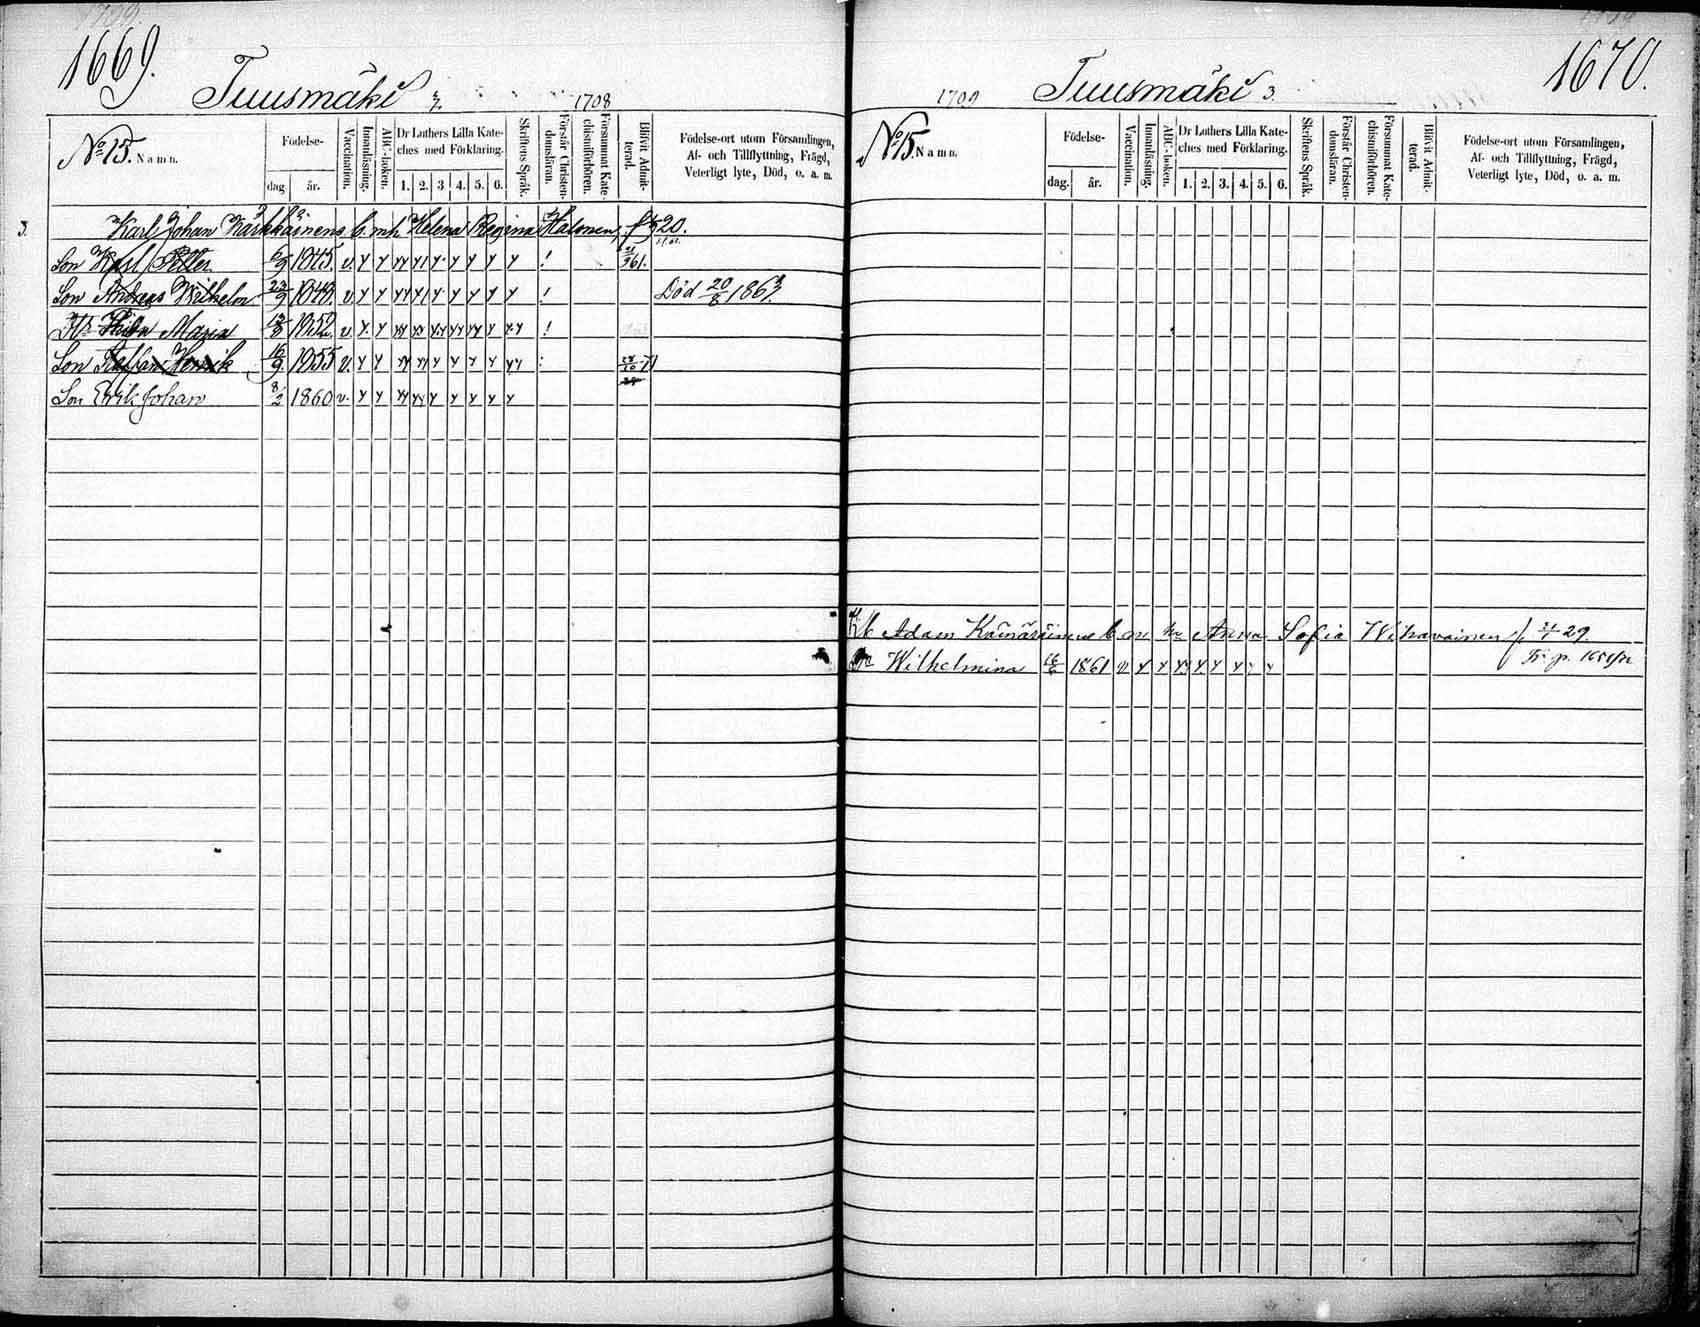 1669.
Tuusmäki
1708
No 15. Namn.
Födelse-
dag
år.
Vaccination.
Innanläsning.
ABC-boken.
Dr Luthers Lilla Kate-
ches med Förklaring.
1. 2. 3. 4. 5. 6.
Skriftens Språk.
Förstår Christen-
domsläran.
Försummat Kate-
chismiförhören.
Blifvit Admit-
terad.
Födelse-ort utom Församlingen,
Af- och Tillflyttning, Frägd,
Veterligt lyte, Död, o. a. m.
3. Karl Johan Kärkkäinens b. m. h. Helena Regina Halonen, f. 20.
Son Karl Petter 6/9 1845. v. !
Son Andreas Wilhelm 23/9 1848. v. ! Död 20/8 1863.
Maria 1852 v. !
Son Staffan Henrik 16/9 1855 v.
Son Erik Johan 8/2 1860 v.
1670.
1709
Tuusmäki 3.
No 15. Namn.
Födelse-
dag.
år.
Vaccination.
Innanläsning.
ABC-boken.
Dr Luthers Lilla Kate-
ches med Förklaring.
1. 2. 3. 4. 5. 6.
Skriftens Språk.
Förstår Christen-
domsläran.
Försummat Kate-
chismiförhören.
Blifvit Admit-
terad.
Födelse-ort utom Församlingen,
Af- och Tillflyttning, Frägd,
Veterligt lyte, Död, o. a. m.
Adam Kämäräinens b. m. hu Anna Sofia Wihavainen f. 21/1 29.
Wilhelmina 1861 v